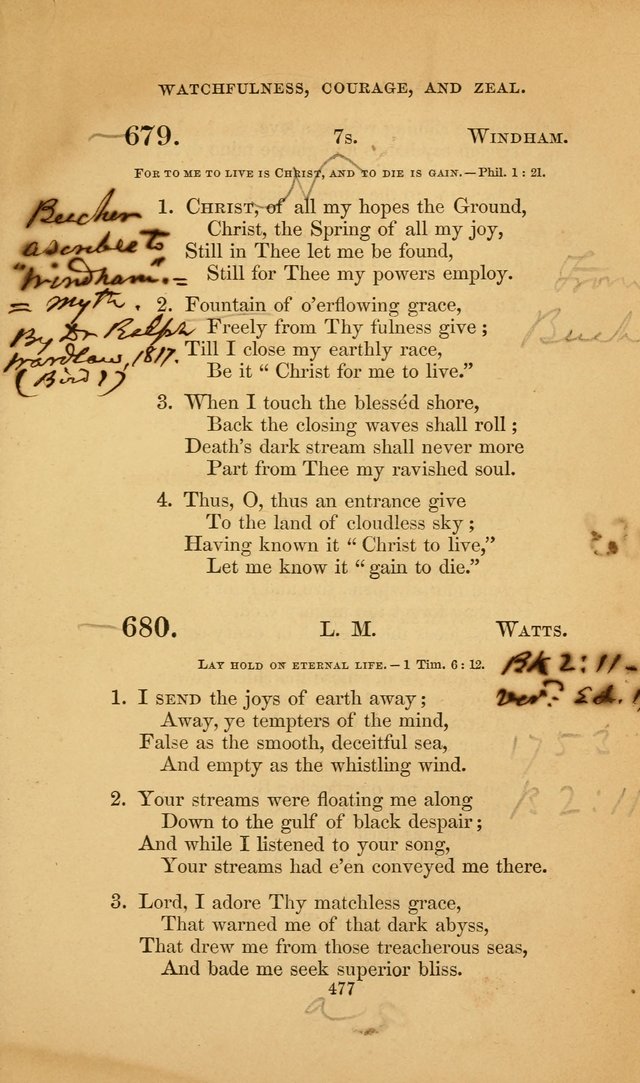 WATCHFULNESS, COURAGE, AND ZEAL.
679. 7s. WINDHAM.
FOR TO ME TO LIVE IS CHRIST, AND TO DIE IS GAIN.—Phil. 1 : 21.
Beecher
ascribes to
"Windham".=
= myth.
By Dr Ralph
Wardlaw, 1817.
(Bird !)
1. CHRIST, of all my hopes the Ground,
Christ, the Spring of all my joy,
Still in Thee let me be found,
Still for Thee my powers employ.
From
Beech
2. Fountain of o'erflowing grace,
Freely from Thy fulness give ;
Till I close my earthly race,
Be it “ Christ for me to live.”
3. When I touch the blesséd shore,
Back the closing waves shall roll ;
Death's dark stream shall never more
Part from Thee my ravished soul.
4. Thus, O, thus an entrance give
To the land of cloudless sky ;
Having known it “ Christ to live,”
Let me know it “ gain to die.”
680. L. M. WATTS.
LAY HOLD ON ETERNAL LIFE. — 1 Tim. 6 : 12.
Bk 2:11-
1. I SEND the joys of earth away ;
Away, ye tempters of the mind,
False as the smooth, deceitful sea,
And empty as the whistling wind.
1753
B 2:11
2. Your streams were floating me along
Down to the gulf of black despair ;
And while I listened to your song,
Your streams had e'en conveyed me there.
3. Lord, I adore Thy matchless grace,
That warned me of that dark abyss,
That drew me from those treacherous seas,
And bade me seek superior bliss.
477